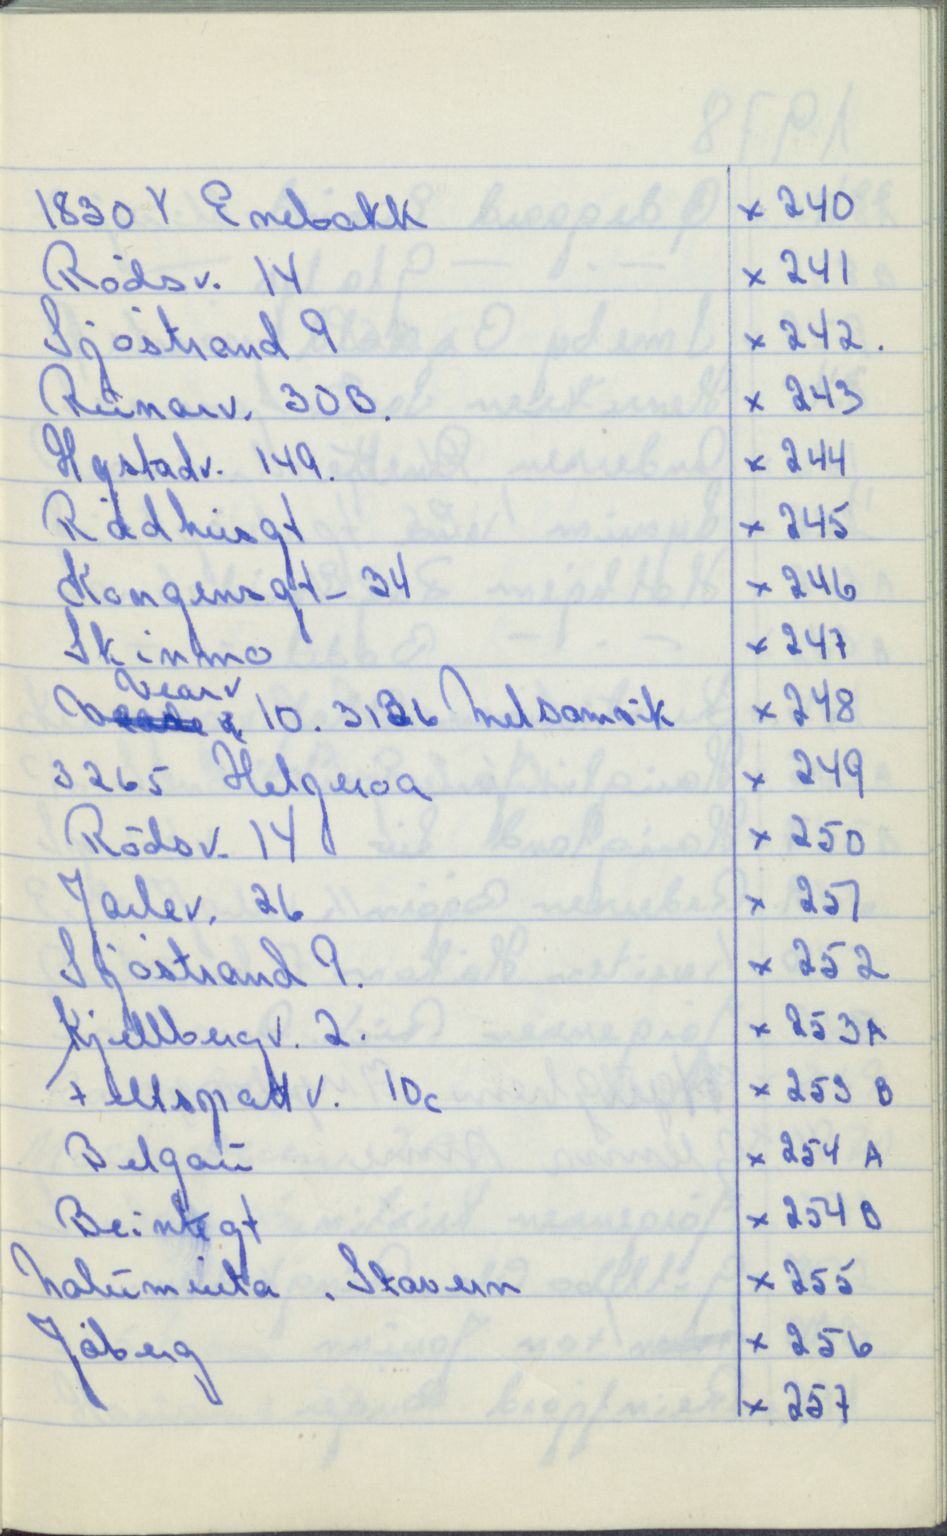 1830 Y Enebakk x 240
Rödsv. 14 x 241
Sjöstrand 9 x 242.
Rünarv. 30B. x 243
Hystadv. 149. x 244
Rådhüsgt x 245
Kongensgt - 34 x 246
Skinmo x 247
Vearv
10. 3126 Melsomvik x 248
3265 Helgeroa x 249
Rödsv. 14 x 250
Jarlev. 26 x 251
Sjöstrand 9. x 252
Kjellbergv. 2. x 253A
+ eltspattv. 10c x 253 B
Belgaü x 254 A
Beintegt x 254 B
Nalümveita . Stavern x 255
Jåberg x 256
x 257